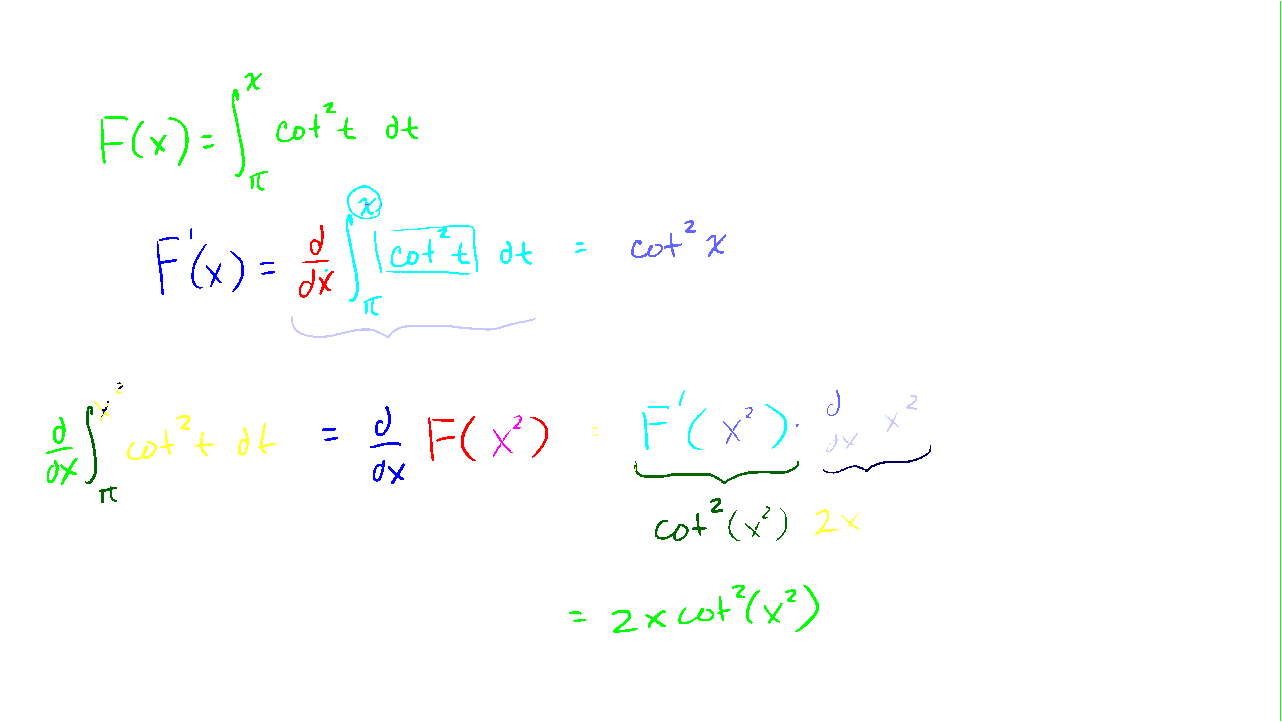 F(x) = ∫_π^x cot²t dt
F'(x) = d/dx ∫_π^x cot²t dt = cot²x
d/dx ∫_π^x² cot²t dt = d/dx F(x²) = F'(x²) · d/dx x²
cot²(x²) 2x
= 2x cot²(x²)